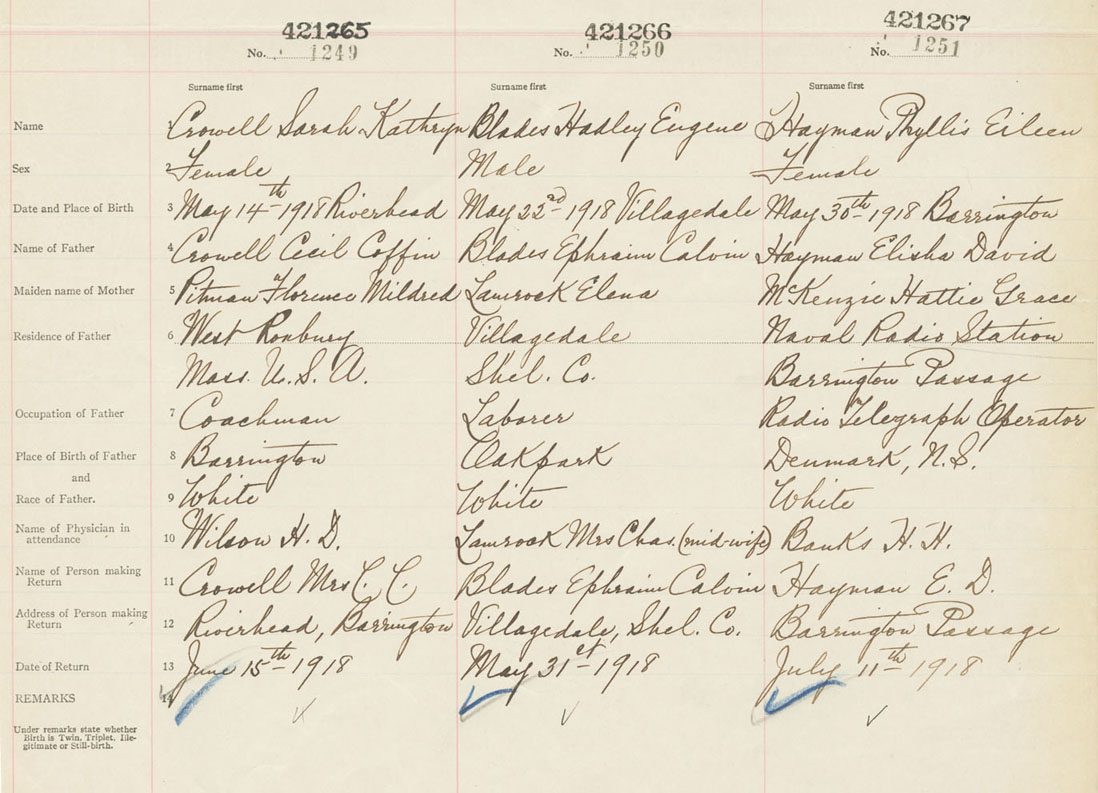 421265 421266 421267
No. 1249 No. 1250 No. 1251
Surname first Surname first Surname first
Name Crowell Sarah Kathryn Blades Hadley Eugene Hayman Phyllis Eileen
Sex 2 Female Male Female
Date and Place of Birth 3 May 14th 1918 Riverhead May 22nd 1918 Villagedale May 30th 1918 Barrington
Name of Father 4 Crowell Cecil Coffin Blades Ephraim Calvin Hayman Elisha David
Maiden name of Mother 5 Pitman Florence Mildred Lamrock Elena McKenzie Hattie Grace
Residence of Father 6 West Roxbury Villagedale Naval Radio Station
Mass. U.S.A. Shel. Co. Barrington Passage
Occupation of Father 7 Coachman Laborer Radio Telegraph Operator
Place of Birth of Father 8 Barrington Oakpark Denmark, N.S.
and
Race of Father. 9 White White White
Name of Physician in
attendance 10 Wilson H. D. Lamrock Mrs Chas. (mid-wife) Banks H. H.
Name of Person making
Return 11 Crowell Mrs C. C. Blades Ephraim Calvin Hayman E. D.
Address of Person making
Return 12 Riverhead, Barrington Villagedale, Shel. Co. Barrington Passage
Date of Return 13 June 15th 1918 May 31st 1918 July 11th 1918
REMARKS 14
Under remarks state whether
Birth is Twin, Triplet, Ille-
gitimate or Still-birth.